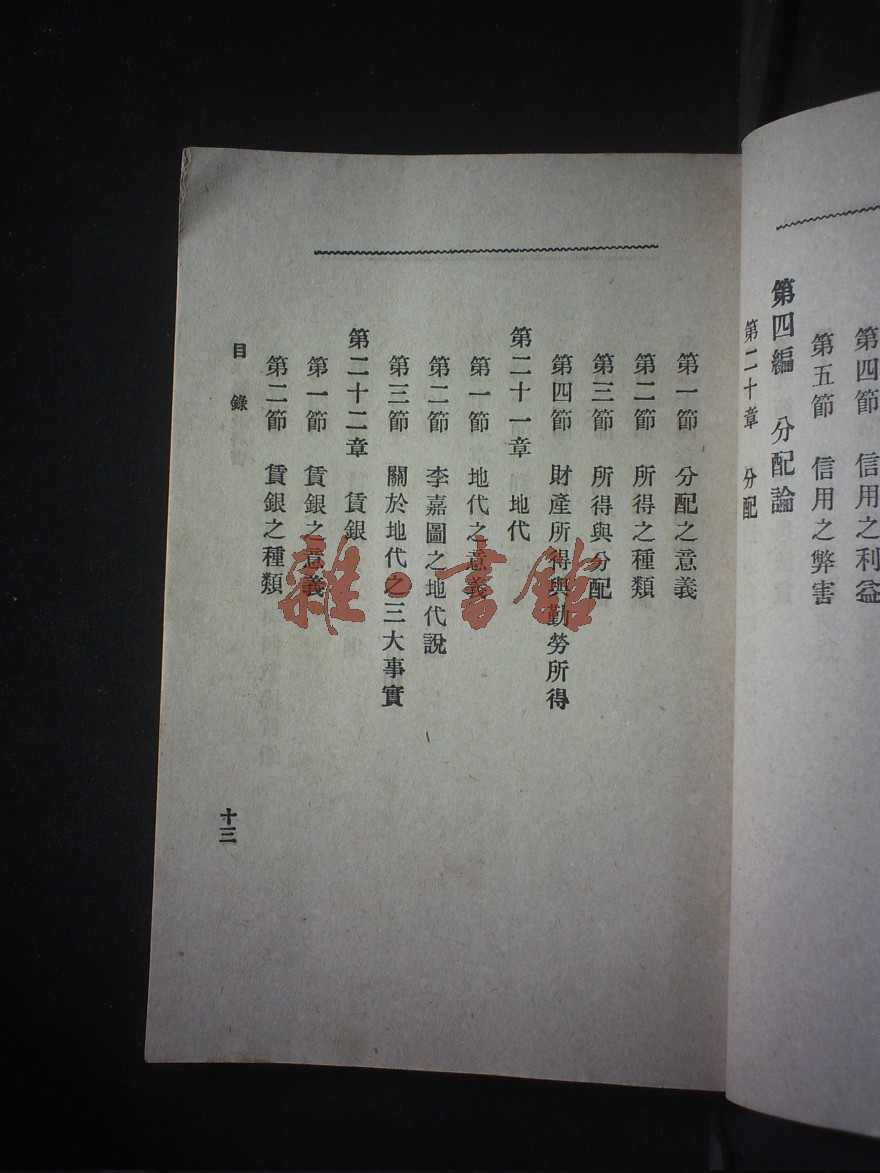 第四節 信用之利益
第五節 信用之弊害
第四編 分配論
第二十章 分配
第一節 分配之意義
第二節 所得之種類
第三節 所得與分配
第四節 財產所得與勤勞所得
第二十一章 地代
第一節 地代之意義
第二節 李嘉圖之地代說
第三節 關於地代之三大事實
第二十二章 賃銀
第一節 賃銀之意義
第二節 賃銀之種類
目錄
十三
雜·書館